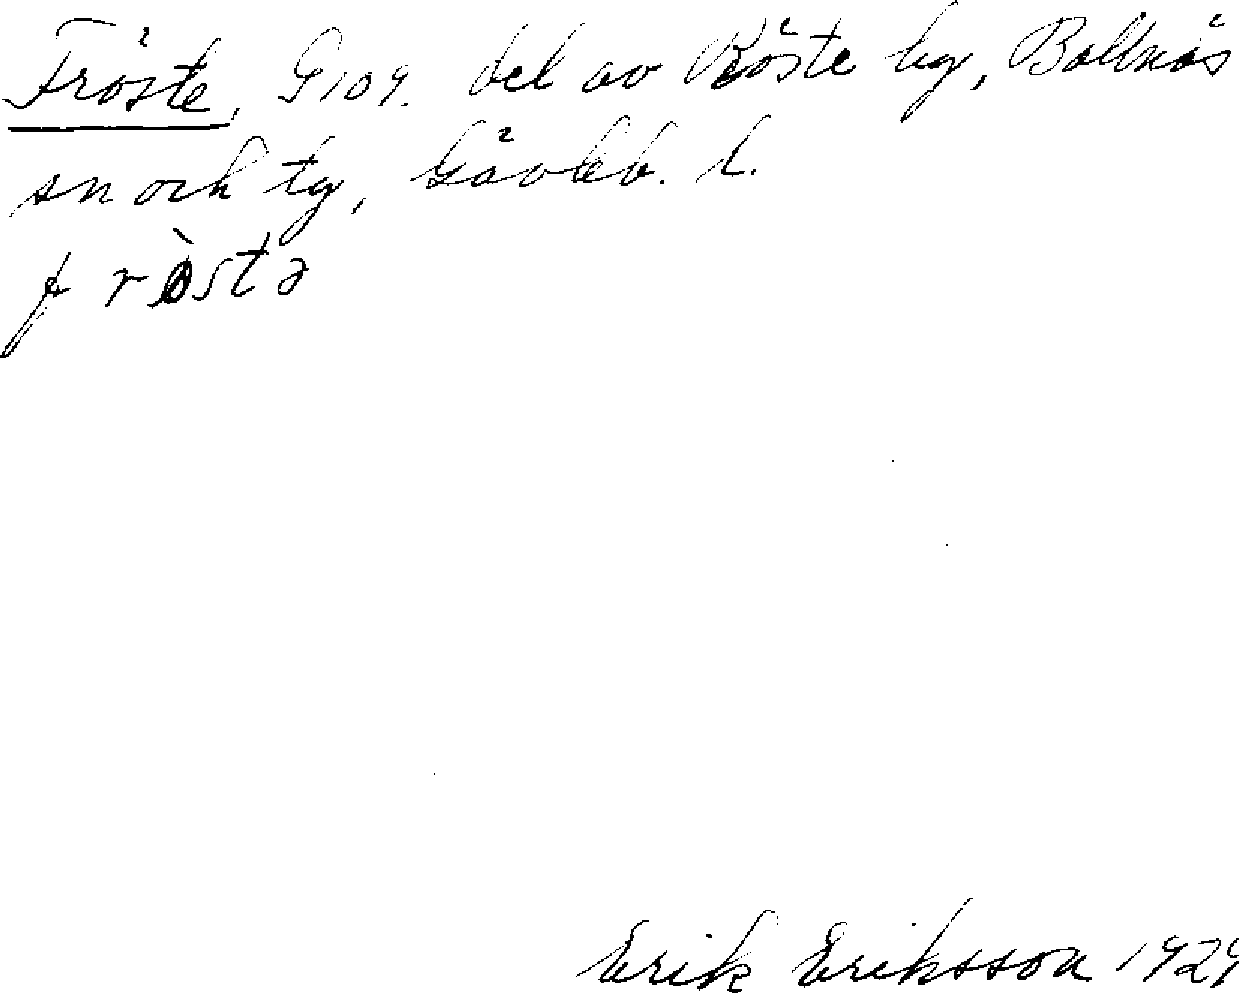 Fröste, G109. del av Röste by, Bollnäs
sn och tg, Gävleb. l.
fròstə
Erik Eriksson 1929